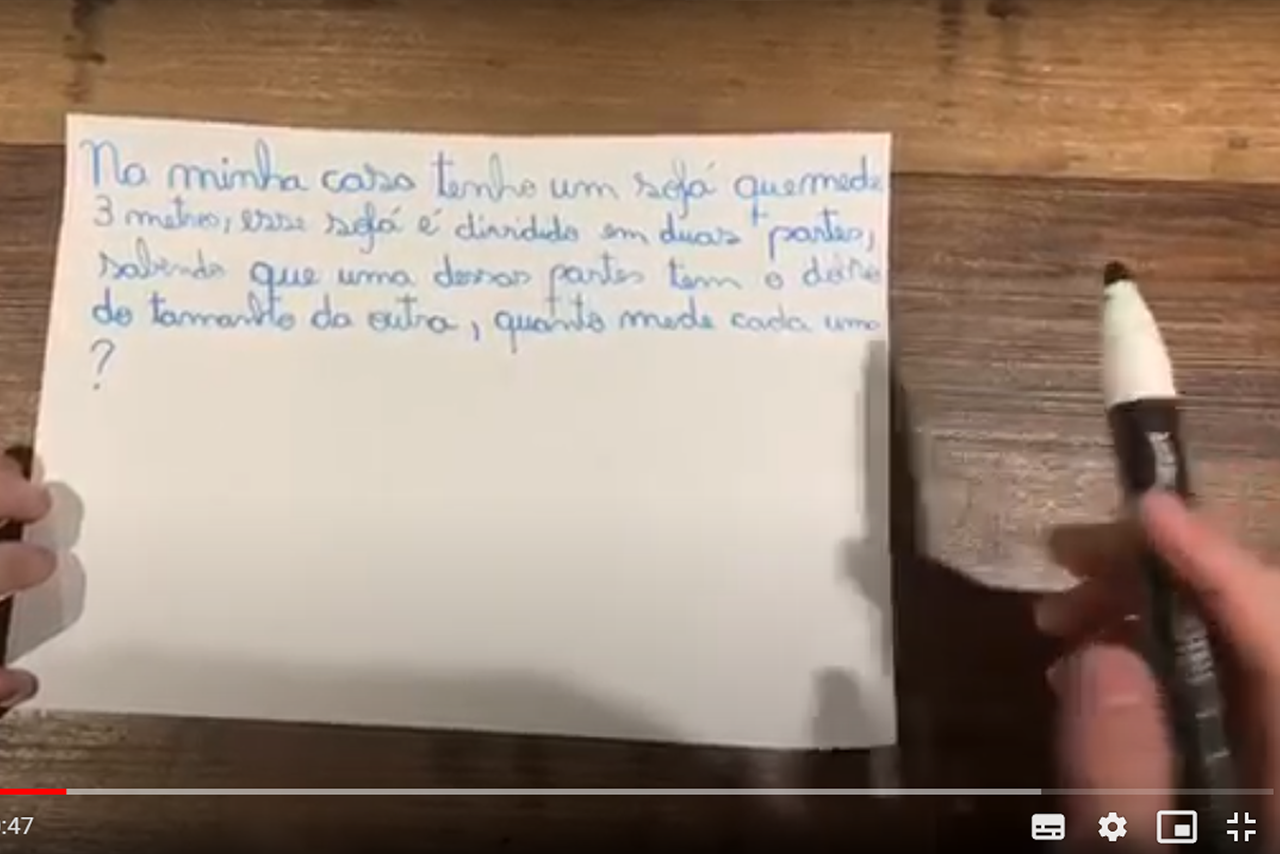 Na minha casa tenho um sofá que mede
3 metros, esse sofá é dividido em duas partes,
sabendo que uma dessas partes tem o dobro
do tamanho da outra, quanto mede cada uma
?
:47